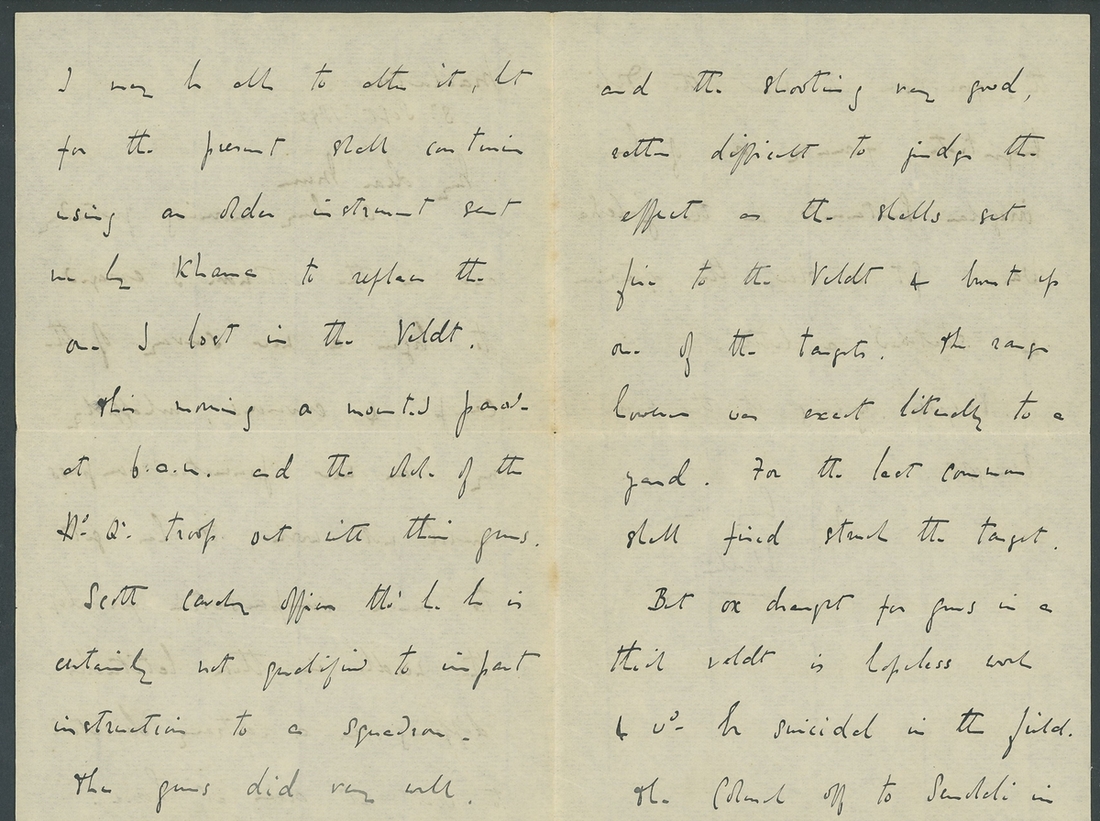 I may be able to alter it, but
for the present shall continue
using an older instrument sent
me by Khama to replace the
one I lost in the Veldt.
This morning a mounted parade
at 6.a.m. and the whole of the
Hd. Qr. troop out with their guns.
Scott cavalry officer tho' he be is
certainly not qualified to impart
instruction to a squadron.
The guns did very well,
and the shooting very good,
rather difficult to judge the
effect as the shells set
fire to the Veldt & burnt up
one of the targets. The range
however was exact literally to a
yard. For the last common
shell fired struck the target.
But ox draught for guns in a
thick veldt is hopeless work
& wd. be suicidal in the field.
The Colonel off to in